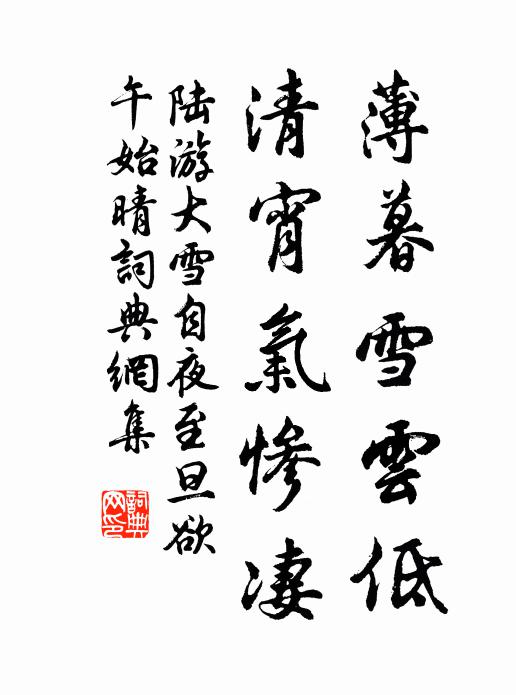 薄暮雪雲低
清宵氣慘凄
陆游大雪自夜至旦欲
午始晴詞典網集
詞典
网印